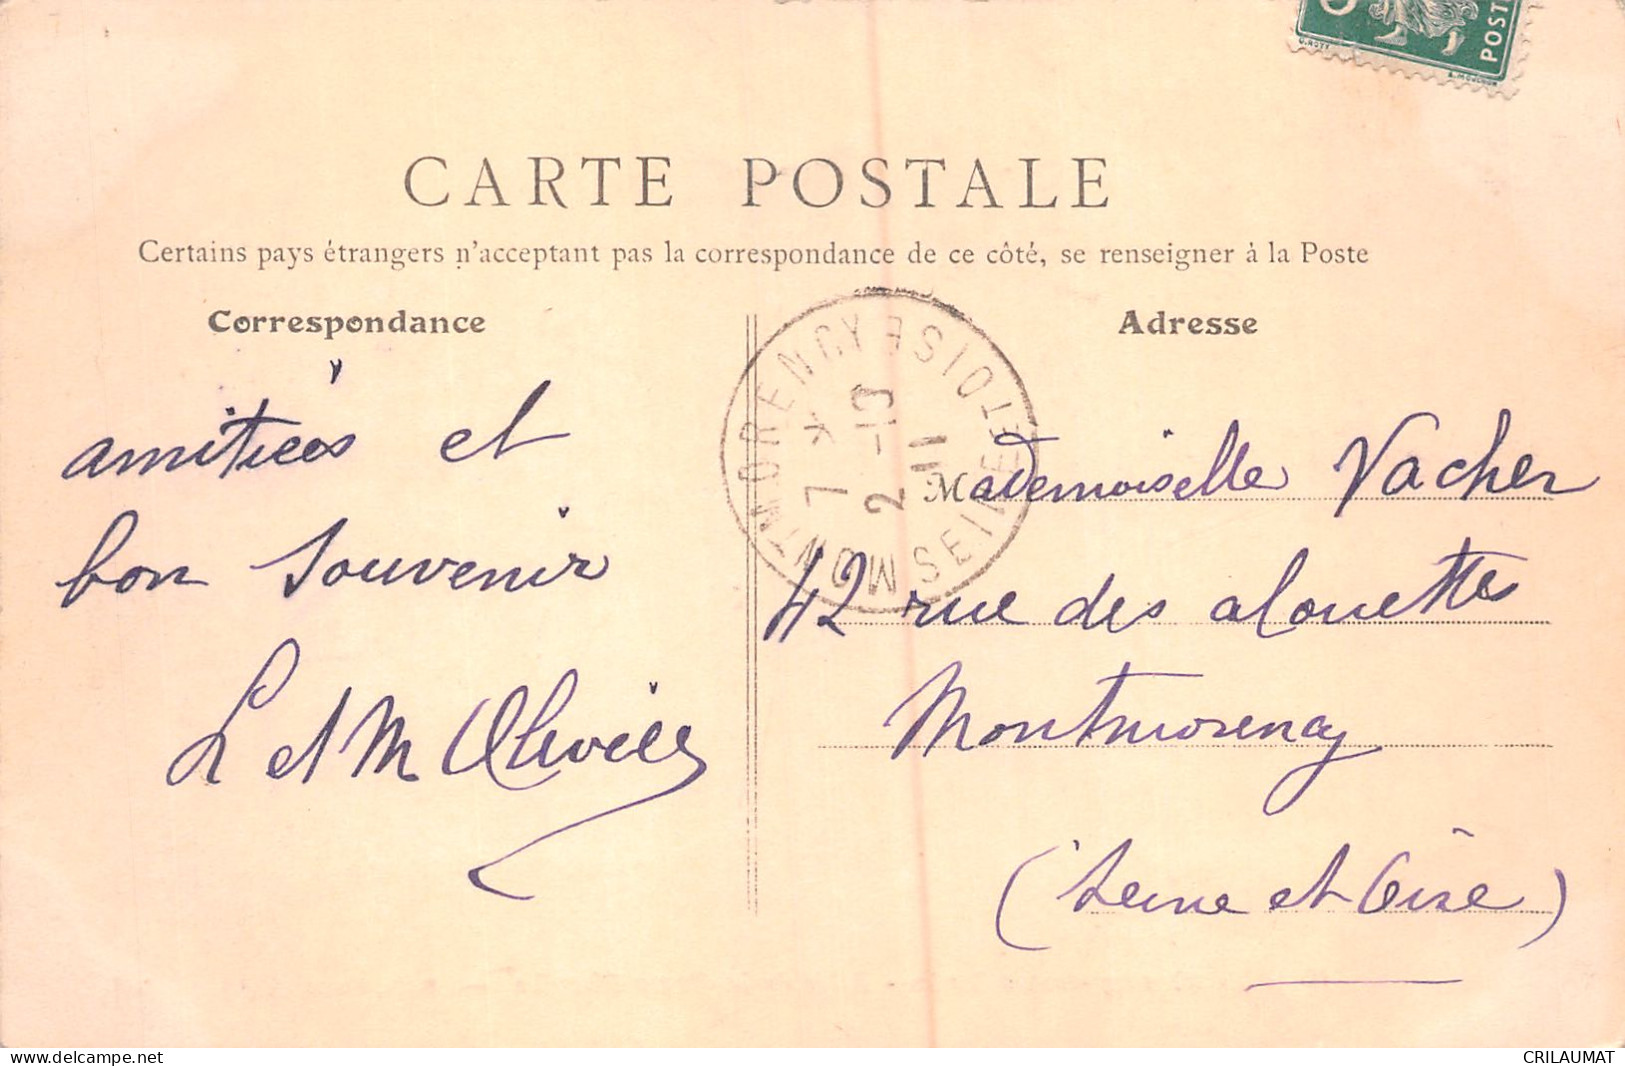 POST
O. ROTY
CARTE POSTALE
Certains pays étrangers n'acceptant pas la correspondance de ce côté, se renseigner à la Poste
Correspondance
Adresse
MONTMORENCY SEINE ET OISE
7 *
2 -10
11
amitiées et
bon souvenir
L et M Olivier
Mademoiselle Vacher
42 rue des alouettes
Montmorency
(Seine et Oise)
www.delcampe.net
CRILAUMAT